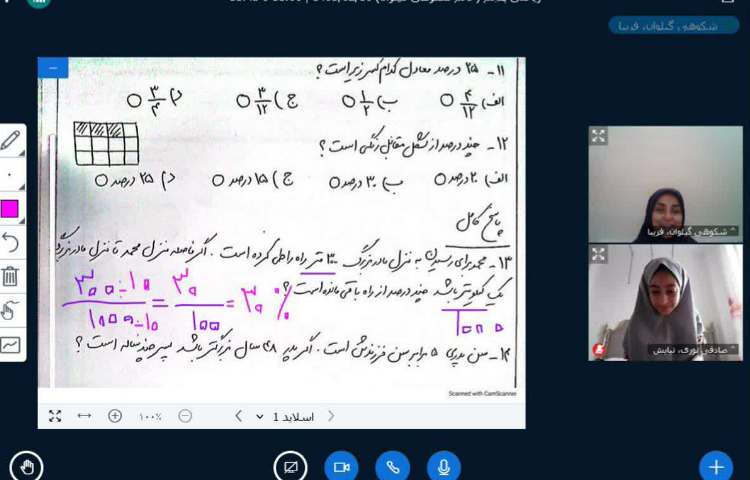 شکوهی گیلوان، فریبا
۱۱- ۲۵ درصد معادل کدام کسر زیر است؟
الف) ۴/۱۲ ب) ۱/۲ ج) ۳/۱۲ د) ۳/۴
۱۲- چند درصد از شکل مقابل رنگی است؟
الف) ۲۰ درصد ب) ۳۰ درصد ج) ۱۵ درصد د) ۲۵ درصد
پاسخ کامل
۱۳- محمد برای رسیدن به منزل مادربزرگ ۳۰۰ متر راه را طی کرده است. اگر فاصله منزل محمد تا منزل مادربزرگ
یک کیلومتر باشد چند درصد از راه باقی مانده است؟
۱۰۰۰
۳۰۰÷۱۰/۱۰۰۰÷۱۰ = ۳۰/۱۰۰ = ۳۰٪
۱۴- سن پدری ۵ برابر سن فرزندش است. اگر پدر ۴۸ سال بزرگتر باشد پسر چند ساله است؟
Scanned with CamScanner
۱۰۰٪
اسلاید 1
شکوهی گیلوان، فریبا
صادقی نوری، نیایش